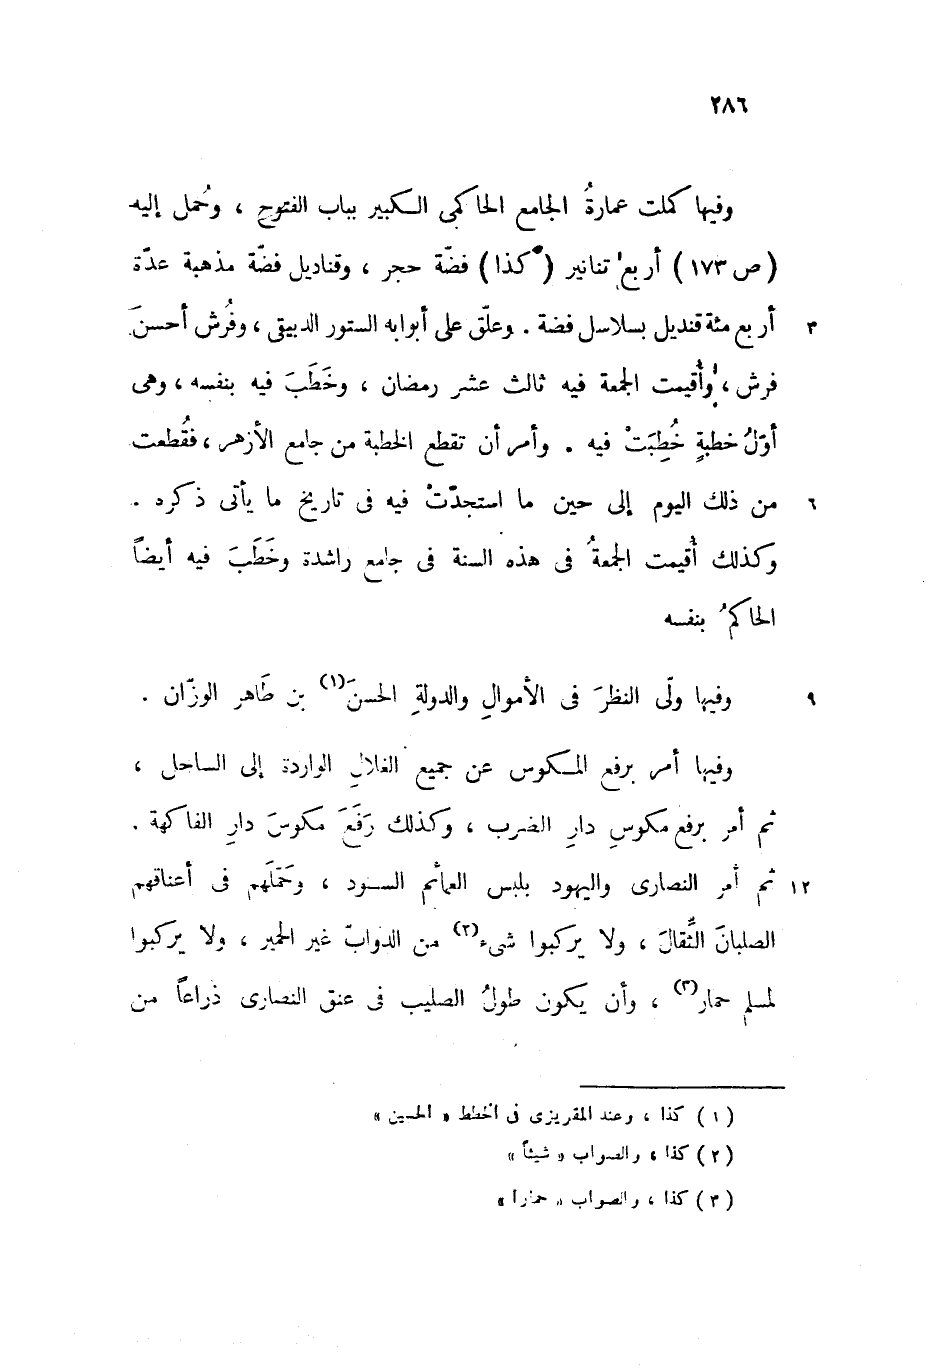 ٢٨٦
وفيها كملت عمارةُ الجامع الحاكمى الكبير بباب الفتوح ، وحُمل إليه
(ص ١٧٣) أربع تنانير (كذا) فضّة حجر ، وقناديل فضّة مذهبة عدّة
٣ أربع مئة قنديل بسلاسل فضة . وعلّق على أبوابه الستور الدبيقى ، وفُرش أحسنَ
فرش ، وأُقيمت الجمعة فيه ثالث عشر رمضان ، وخَطَبَ فيه بنفسه ، وهى
أوّلُ خطبةٍ خُطِبَتْ فيه . وأمر أن تقطع الخطبة من جامع الأزهر ، فقُطعت
٦ من ذلك اليوم إلى حين ما استجدّتْ فيه فى تاريخ ما يأتى ذكره .
وكذلك أُقيمت الجمعةُ فى هذه السنة فى جامع راشدة وخَطَبَ فيه أيضاً
الحاكمُ بنفسه
٩ وفيها ولّى النظرَ فى الأموالِ والدولةِ الحسنَ(١) بن طَاهر الوزّان .
وفيها أمر برفع المكوس عن جميع الغلالِ الواردة إلى الساحل ،
ثم أمر برفع مكوسِ دارِ الضرب ، وكذلك رَفَعَ مكوسَ دارِ الفاكهة .
١٢ ثم أمر النصارى واليهود بلبس العمأئم السود ، وحَمَلَهم فى أعناقهم
الصلبانَ الثِّقالَ ، ولا يركبوا شىء(٢) من الدوابّ غير الحمير ، ولا يركبوا
لمسلم حمار(٣) ، وأن يكون طولُ الصليب فى عنق النصارى ذراعاً من
(١) كذا ، وعند المقريزى فى الخطط « الحسين »
(٢) كذا ، والصواب « شيئاً »
(٣) كذا ، والصواب « حمارا »